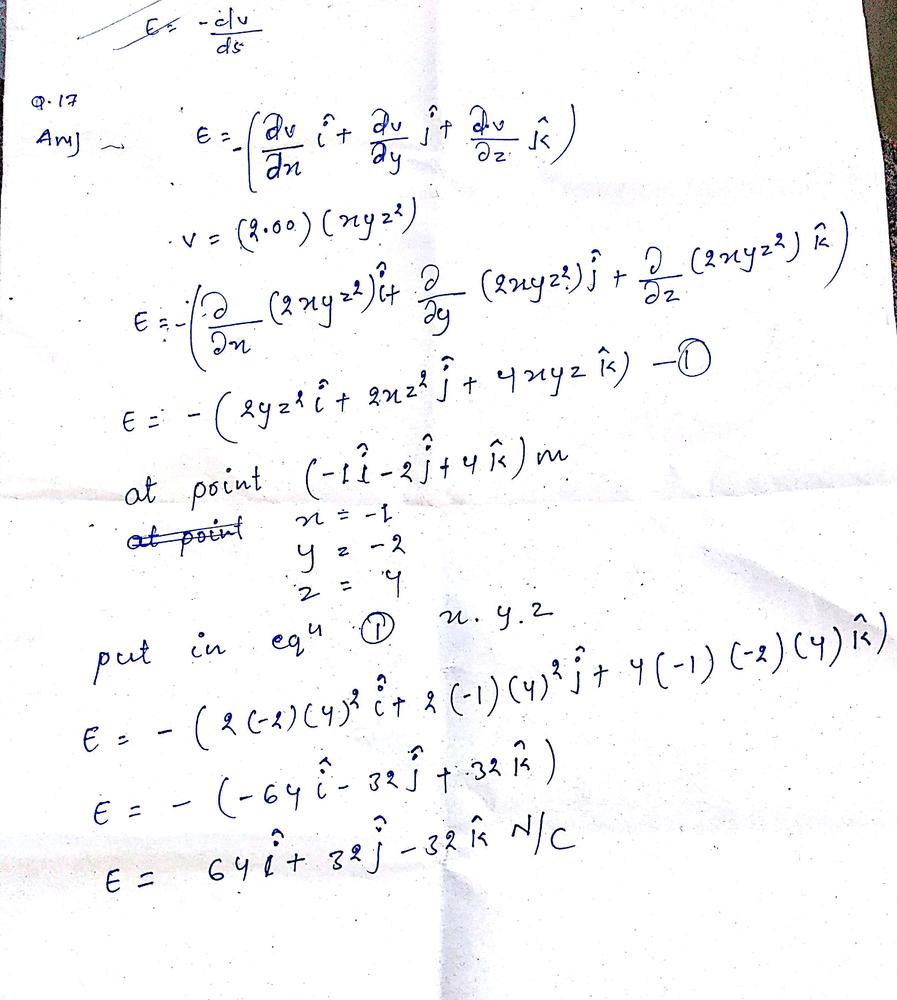 E = -dv/ds
Q.17
Ans ~ E = -(∂v/∂x î + ∂v/∂y ĵ + ∂v/∂z k̂)
v = (2.00) (xyz²)
E = -(∂/∂x (2xyz²) î + ∂/∂y (2xyz²) ĵ + ∂/∂z (2xyz²) k̂)
E = - (2yz² î + 2xz² ĵ + 4xyz k̂) —①
at point (-1î - 2ĵ + 4k̂) m
at point x = -1
y = -2
z = 4
put in eqⁿ ① x. y. z
E = - (2(-2)(4)² î + 2(-1)(4)² ĵ + 4(-1)(-2)(4) k̂)
E = - (-64 î - 32 ĵ + 32 k̂)
E = 64 î + 32 ĵ - 32 k̂ N/C